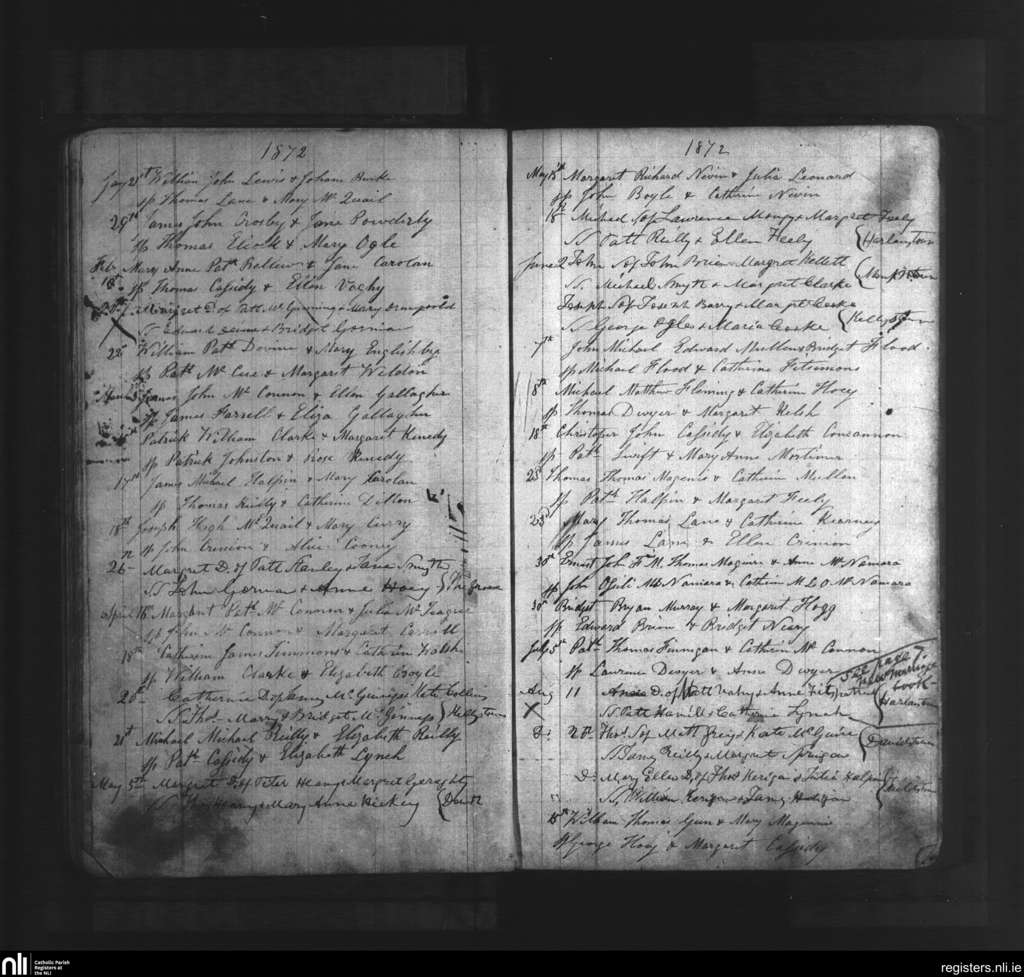 1872
Jany 21st William John Lewis & Johana Burke
sp Thomas Lane & Mary Mc Quail
29th James John Crosby & Jane Powderly
sp Thomas & Mary Ogle
Feb Mary Anne Patk Bellew & Jane Carolan
18th sp Thomas Cassidy & Ellen
Margret D. of Patt. Mc & Mary
SS Edward & Bridget
22 William Patk Devine & Mary English
sp Patk Mc Cue & Margaret Weldon
James John Mc Connon & Ellen Gallagher
sp James Farrell & Eliza Gallagher
Patrick William Clarke & Margaret Kenedy
sp Patrick Johnston & Rose Kenedy
17th James Michael Halpin & Mary Carolan
sp Thomas Reilly & Catherine Dillon
18th Joseph Hugh Mc Quail & Mary Curry
sp John Crinion & Alice Cooney
26 Margret D. of Patt & Jane Smyth
SS John Gorman & Anne Hoey
April 16 Margaret Patk Mc Connon & Julia Mc Teague
sp John Mc Connon & Margaret Carroll
18th Catherine James Fimmons & Catherine Walsh
sp William Clarke & Elizabeth Boyle
20th Catherine D of James Mc Ginniss & Kate Collins
SS Thos. & Bridget Mc Ginniss { Kellystown
21st Michael Michael Reilly & Elizabeth Reilly
sp Patk Cassidy & Elizabeth Lynch
May 5th Margret D of Peter Heany & Margret Geraghty
SS Heany & Mary Anne Hickey
1872
May Margaret Richard Nevin & Julia Leonard
sp John Boyle & Catherine Nevin
18 Michael S of Lawrence & Margret Feely
SS Patt Reilly & Ellen Feely { Harlanstown
June 2 John S of John Brien & Margret Kellett
SS. Michael Smyth & Margret Clarke
Joseph S of Joseph Barry & Margt Cooke
SS George Ogle & Maria Cooke { Kellystown
7th John Michael Edward Mullen & Bridget Flood
sp Michael Flood & Catherine Fitsimons
8th Michael Matthew Fleming & Catherine Hoey
sp Thomas Dwyer & Margaret Relsh
18th Christopher John Cassidy & Elizabeth Concannon
sp Patk & Mary Anne Mortimer
25 Thomas Thomas Magennis & Catherine Mullen
sp Patk Halpin & Margaret Feely
23 Mary Thomas Lane & Catherine Kearney
sp James Lane & Ellen Crinion
30th Ernest John Thomas Maguire & Anne Mc Namara
sp John Mc Namara & Catherine Mc Namara
30th Bridget Bryan Murray & Margaret Hogg
sp Edward Brien & Bridget Neary
July 5th Patk Thomas Finnegan & Catherine Mc Connon
sp Laurence Dwyer & Anne Dwyer
See page 7. marriage book
Aug 11 Anne D. of Patt & Anne Fitzpatrick
X SS Patt Hamill & Catherine Lynch { Harlanstown
Do Thos. S of Matt & Kate McGuire
SS James Reilly & Margret
Do Mary Ellen D. of Thos Kerigan & Julia Halpin
SS, William Kerigan & James
15th William Thomas Gunn & Mary Maguire
sp George Hoey & Margaret Cassidy
nli
Catholic Parish
Registers at
the NLI
registers.nli.ie